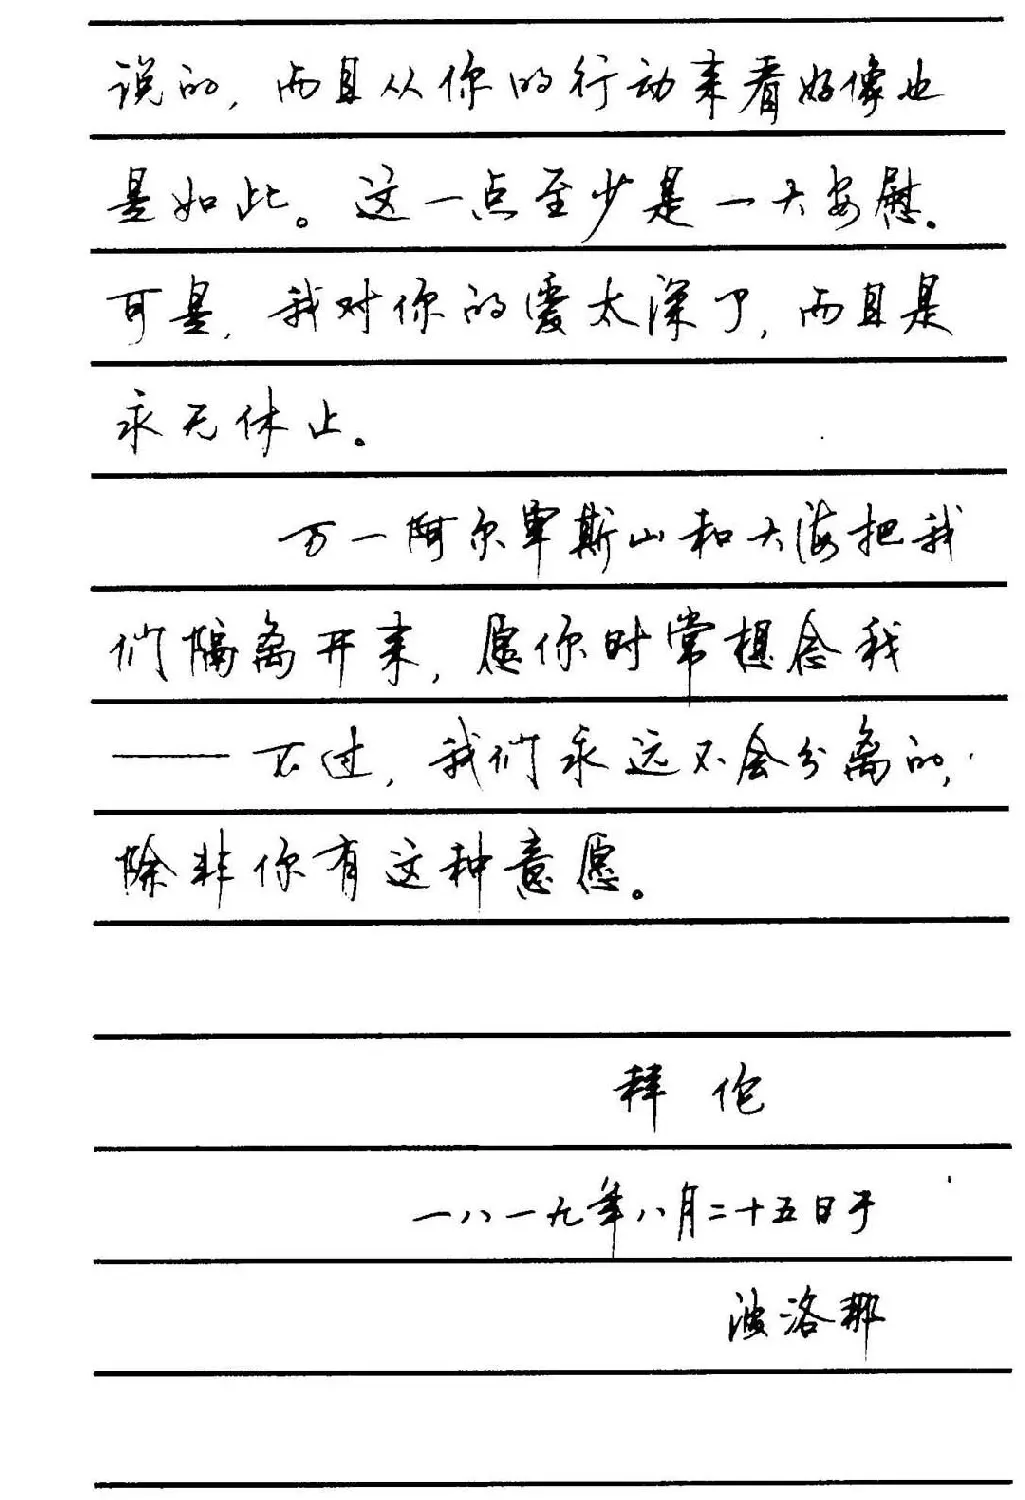 说的，而且从你的行动来看好像也
是如此。这一点至少是一大安慰。
可是，我对你的爱太深了，而且是
永无休止。
万一阿尔卑斯山和大海把我
们隔离开来，愿你时常想念我
——不过，我们永远不会分离的，
除非你有这种意愿。
拜伦
一八一九年八月二十五日于
波洛那